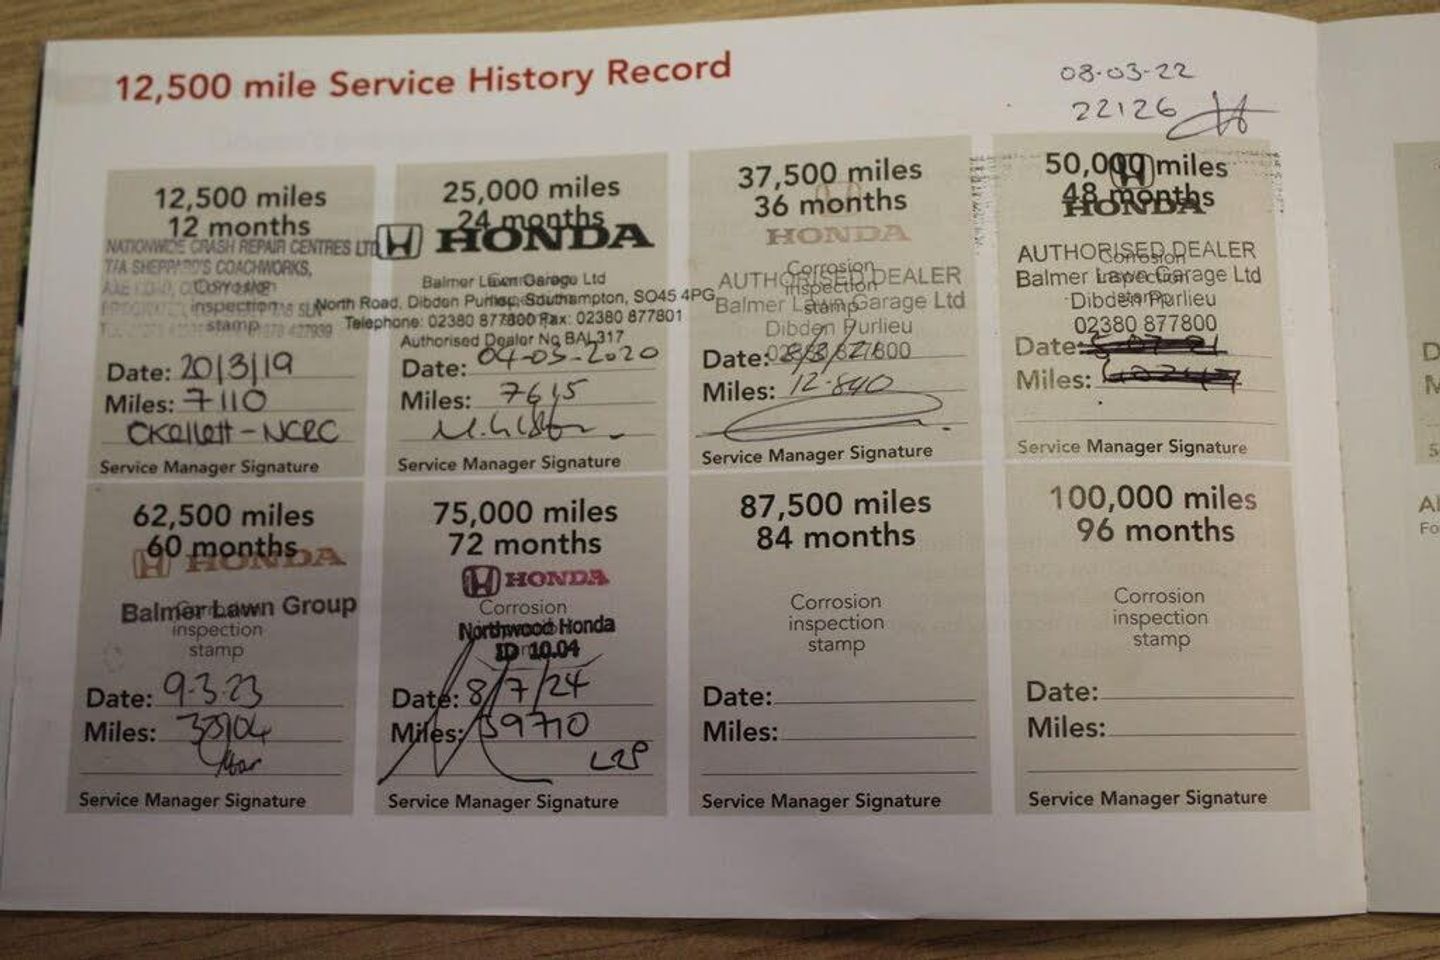 12,500 mile Service History Record
08-03-22
22126
12,500 miles
12 months
NATIONWIDE CRASH REPAIR CENTRES LTD
T/A SHEPPARD'S COACHWORKS,
Corrosion
inspection
stamp
Date: 20/3/19
Miles: 7110
CKellett - NCRC
Service Manager Signature
25,000 miles
24 months
HONDA
Balmer Lawn Garage Ltd
North Road, Dibden Purlieu, Southampton, SO45 4PG
Telephone: 02380 877800 Fax: 02380 877801
Authorised Dealer No BAL317
Date: 04-03-2020
Miles: 7615
Service Manager Signature
37,500 miles
36 months
HONDA
Corrosion
AUTHORISED DEALER
inspection
Balmer Lawn Garage Ltd
stamp
Dibden Purlieu
02380 877800
Date: 8/3/21
Miles: 12-840
Service Manager Signature
50,000 miles
48 months
HONDA
AUTHORISED DEALER
Corrosion
Balmer Lawn Garage Ltd
inspection
Dibden Purlieu
stamp
02380 877800
Date:
Miles:
Service Manager Signature
62,500 miles
60 months
HONDA
Balmer Lawn Group
Corrosion
inspection
stamp
Date: 9-3-23
Miles:
Service Manager Signature
75,000 miles
72 months
HONDA
Corrosion
Northwood Honda
ID 10.04
Date: 8/7/24
Miles: 39710
Service Manager Signature
87,500 miles
84 months
Corrosion
inspection
stamp
Date:
Miles:
Service Manager Signature
100,000 miles
96 months
Corrosion
inspection
stamp
Date:
Miles:
Service Manager Signature